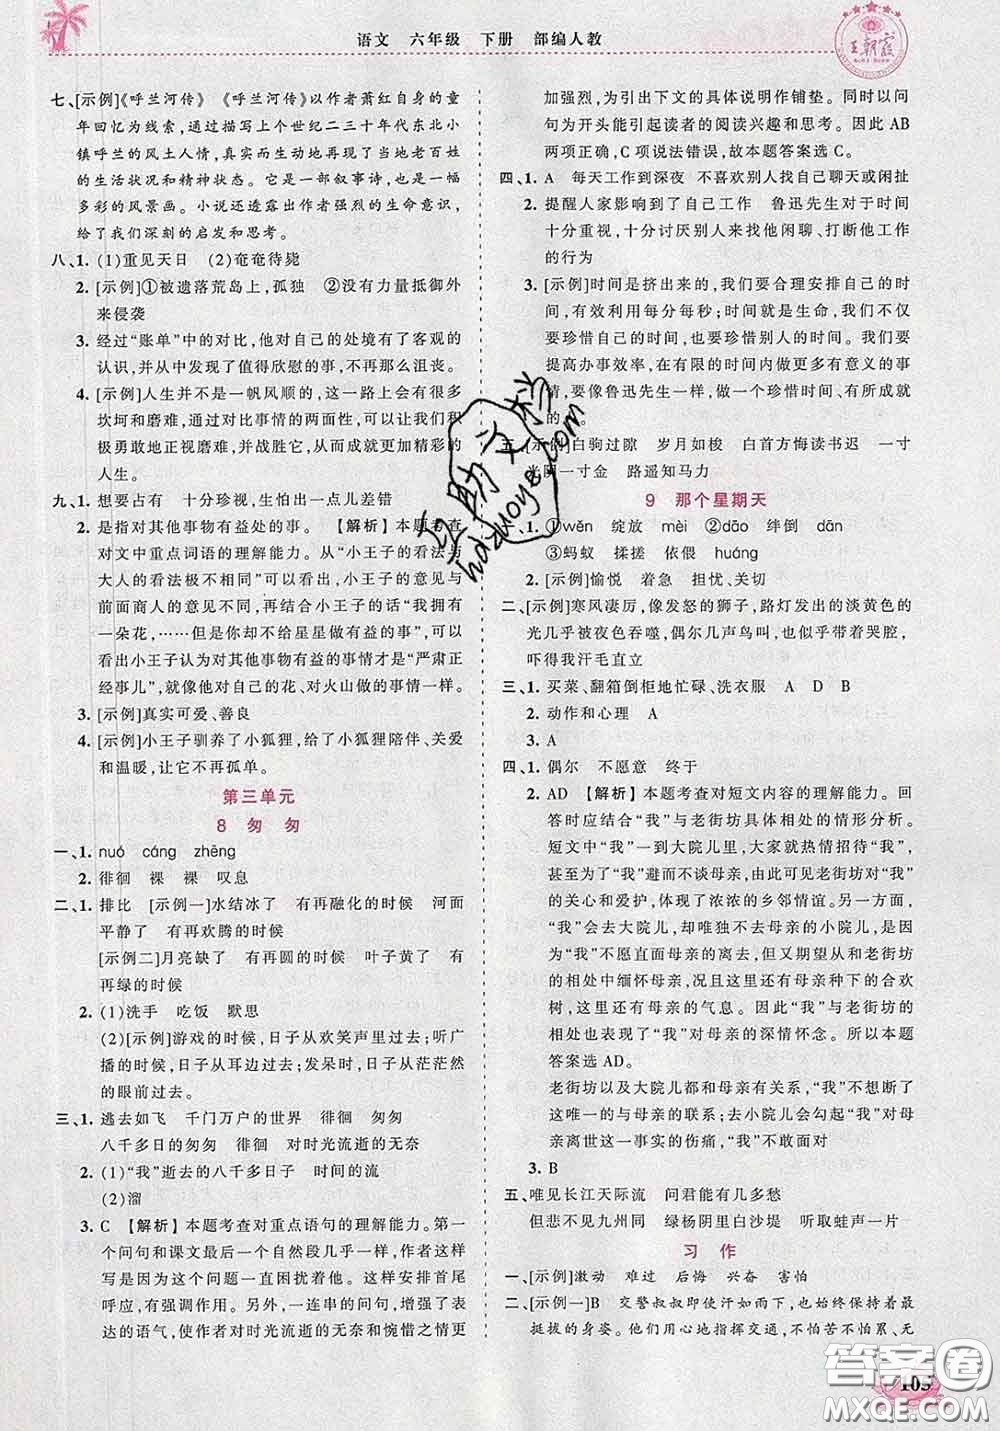 语文 六年级 下册 部编人教
王朝霞
七、[示例]《呼兰河传》 《呼兰河传》以作者萧红自身的童
年回忆为线索,通过描写上个世纪二三十年代东北小
镇呼兰的风土人情,真实而生动地再现了当地老百姓
的生活状况和精神状态。它是一部叙事诗,也是一幅
多彩的风景画。小说还透露出作者强烈的生命意识,
给了我们深刻的启发和思考。
八、1. (1)重见天日 (2)奄奄待毙
2. [示例]①被遗落荒岛上,孤独 ②没有力量抵御外
来侵袭
3. 经过“账单”中的对比,他对自己的处境有了客观的
认识,并从中发现了值得欣慰的事,不再那么沮丧。
4. [示例]人生并不是一帆风顺的,这一路上会有很多
坎坷和磨难,通过对比事情的两面性,可以让我们积
极勇敢地正视磨难,并战胜它,从而拥有更加精彩的
人生。
九、1. 想要占有 十分珍视,生怕出一点儿差错
2. 是指对其他事物有益处的事。 【解析】本题考查
对文中重点词语的理解能力。从“小王子的看法与
大人的看法极不相同”可以看出小王子的意见与
前面商人的意见不同,再结合小王子的话“我拥有
一朵花,……但是你却不给星星做有益的事”,可以
看出小王子认为对其他事物有益的事情才是“严肃正
经事儿”,就像他对自己的花、对火山做的事情一样。
3. [示例]真实可爱、善良
4. [示例]小王子驯养了小狐狸,给了小狐狸陪伴、关爱
和温暖,让它不再孤单。
第三单元
8 匆 匆
一、1. nuó cáng zhēng
2. 徘徊 裸 裸 叹息
二、1. 排比 [示例一]水结冰了 有再融化的时候 河面
平静了 有再欢腾的时候
[示例二]月亮缺了 有再圆的时候 叶子黄了 有
再绿的时候
2. (1)洗手 吃饭 默思
(2)[示例]游戏的时候,日子从欢笑声里过去;听广
播的时候,日子从耳边过去;发呆时,便从茫茫然
的眼前过去。
三、1. 逃去如飞 千门万户的世界 徘徊 匆匆
八千多日的匆匆 徘徊 对时光流逝的无奈
2. (1)“我”逝去的八千多日子 时间的流
(2)溜
3. C 【解析】本题考查对重点语句的理解能力。第一
个问句和课文最后一个自然段几乎一样,作者这样
写是因为这个问题一直困扰着他。这样安排首尾
呼应,有强调作用。另外,一连串的问句,增强了表
达的语气,使作者对时光流逝的无奈和惋惜之情更
加强烈,为引出下文的具体说明作铺垫。同时以问
句为开头能引起读者的阅读兴趣和思考。因此 AB
两项正确,C 项说法错误,故本题答案选 C。
四、1. A 每天工作到深夜 不喜欢别人找自己聊天或闲扯
2. 提醒人家影响到了自己工作 鲁迅先生对于时间
十分重视,十分讨厌别人来找他闲聊、打断他工作
的行为
3. [示例]时间是挤出来的,我们要合理安排自己的时
间,有效利用每分每秒;时间就是生命,我们不仅
要珍惜自己的时间,也要珍惜别人的时间。我们要
提高办事效率,在有限的时间内做更多有意义的事
情,要像鲁迅先生一样,做一个珍惜时间、有所成就
五、[示例]白驹过隙 岁月如梭 白首方悔读书迟 一寸
光阴一寸金 路遥知马力
9 那个星期天
一、1. ①wěn 绽放 mèi ②dāo 绊倒 dān
③蚂蚁 揉搓 依偎 huáng
2. [示例]愉悦 着急 担忧、关切
二、[示例]寒风凄厉,像发怒的狮子,路灯发出的淡黄色的
光几乎被这寒夜吞噬,偶尔几声鸟叫,也似乎带着哭腔,
吓得我汗毛直立
三、1. 买菜、翻箱倒柜地忙碌、洗衣服 A D B
2. 动作和心理 A
3. A
四、1. 偶尔 不愿意 终于
2. AD 【解析】本题考查对短文内容的理解能力。回
答时应结合“我”与老街坊具体相处的情形分析。
短文中“我”一到大院儿里,大家就热情招待“我”
“我”避而不谈母亲,这里可以看出老街坊对“我”
的关心和爱护,体现了浓浓的乡邻情谊。另一方面,
“我”去大院儿,却唯独不去母亲的小院儿,可以看
出“我”不愿直面母亲的离去,但又期望从和老街坊
的相处中缅怀母亲。况且小院儿有母亲种下的合欢
树,这里还有母亲的气息。因此“我”与老街坊的
相处也表现了“我”对母亲的深情怀念。所以本题
答案选 AD。
老街坊以及大院儿都和母亲有关系,“我”不想断了
这唯一的与母亲的联系;去小院儿会勾起“我”对母
亲离世这一事实的伤痛,“我”不敢面对
3. B
五、唯见长江天际流 问君能有几多愁
但悲不见九州同 绿杨阴里白沙堤 听取蛙声一片
习 作
一、[示例]激动 难过 后悔 兴奋 害怕
二、[示例一]B 交警叔叔即使汗如雨下,也始终保持着最
挺拔的身姿。他们用心地指挥交通,不怕苦不怕累、无
105
答案卷
MXQE.COM